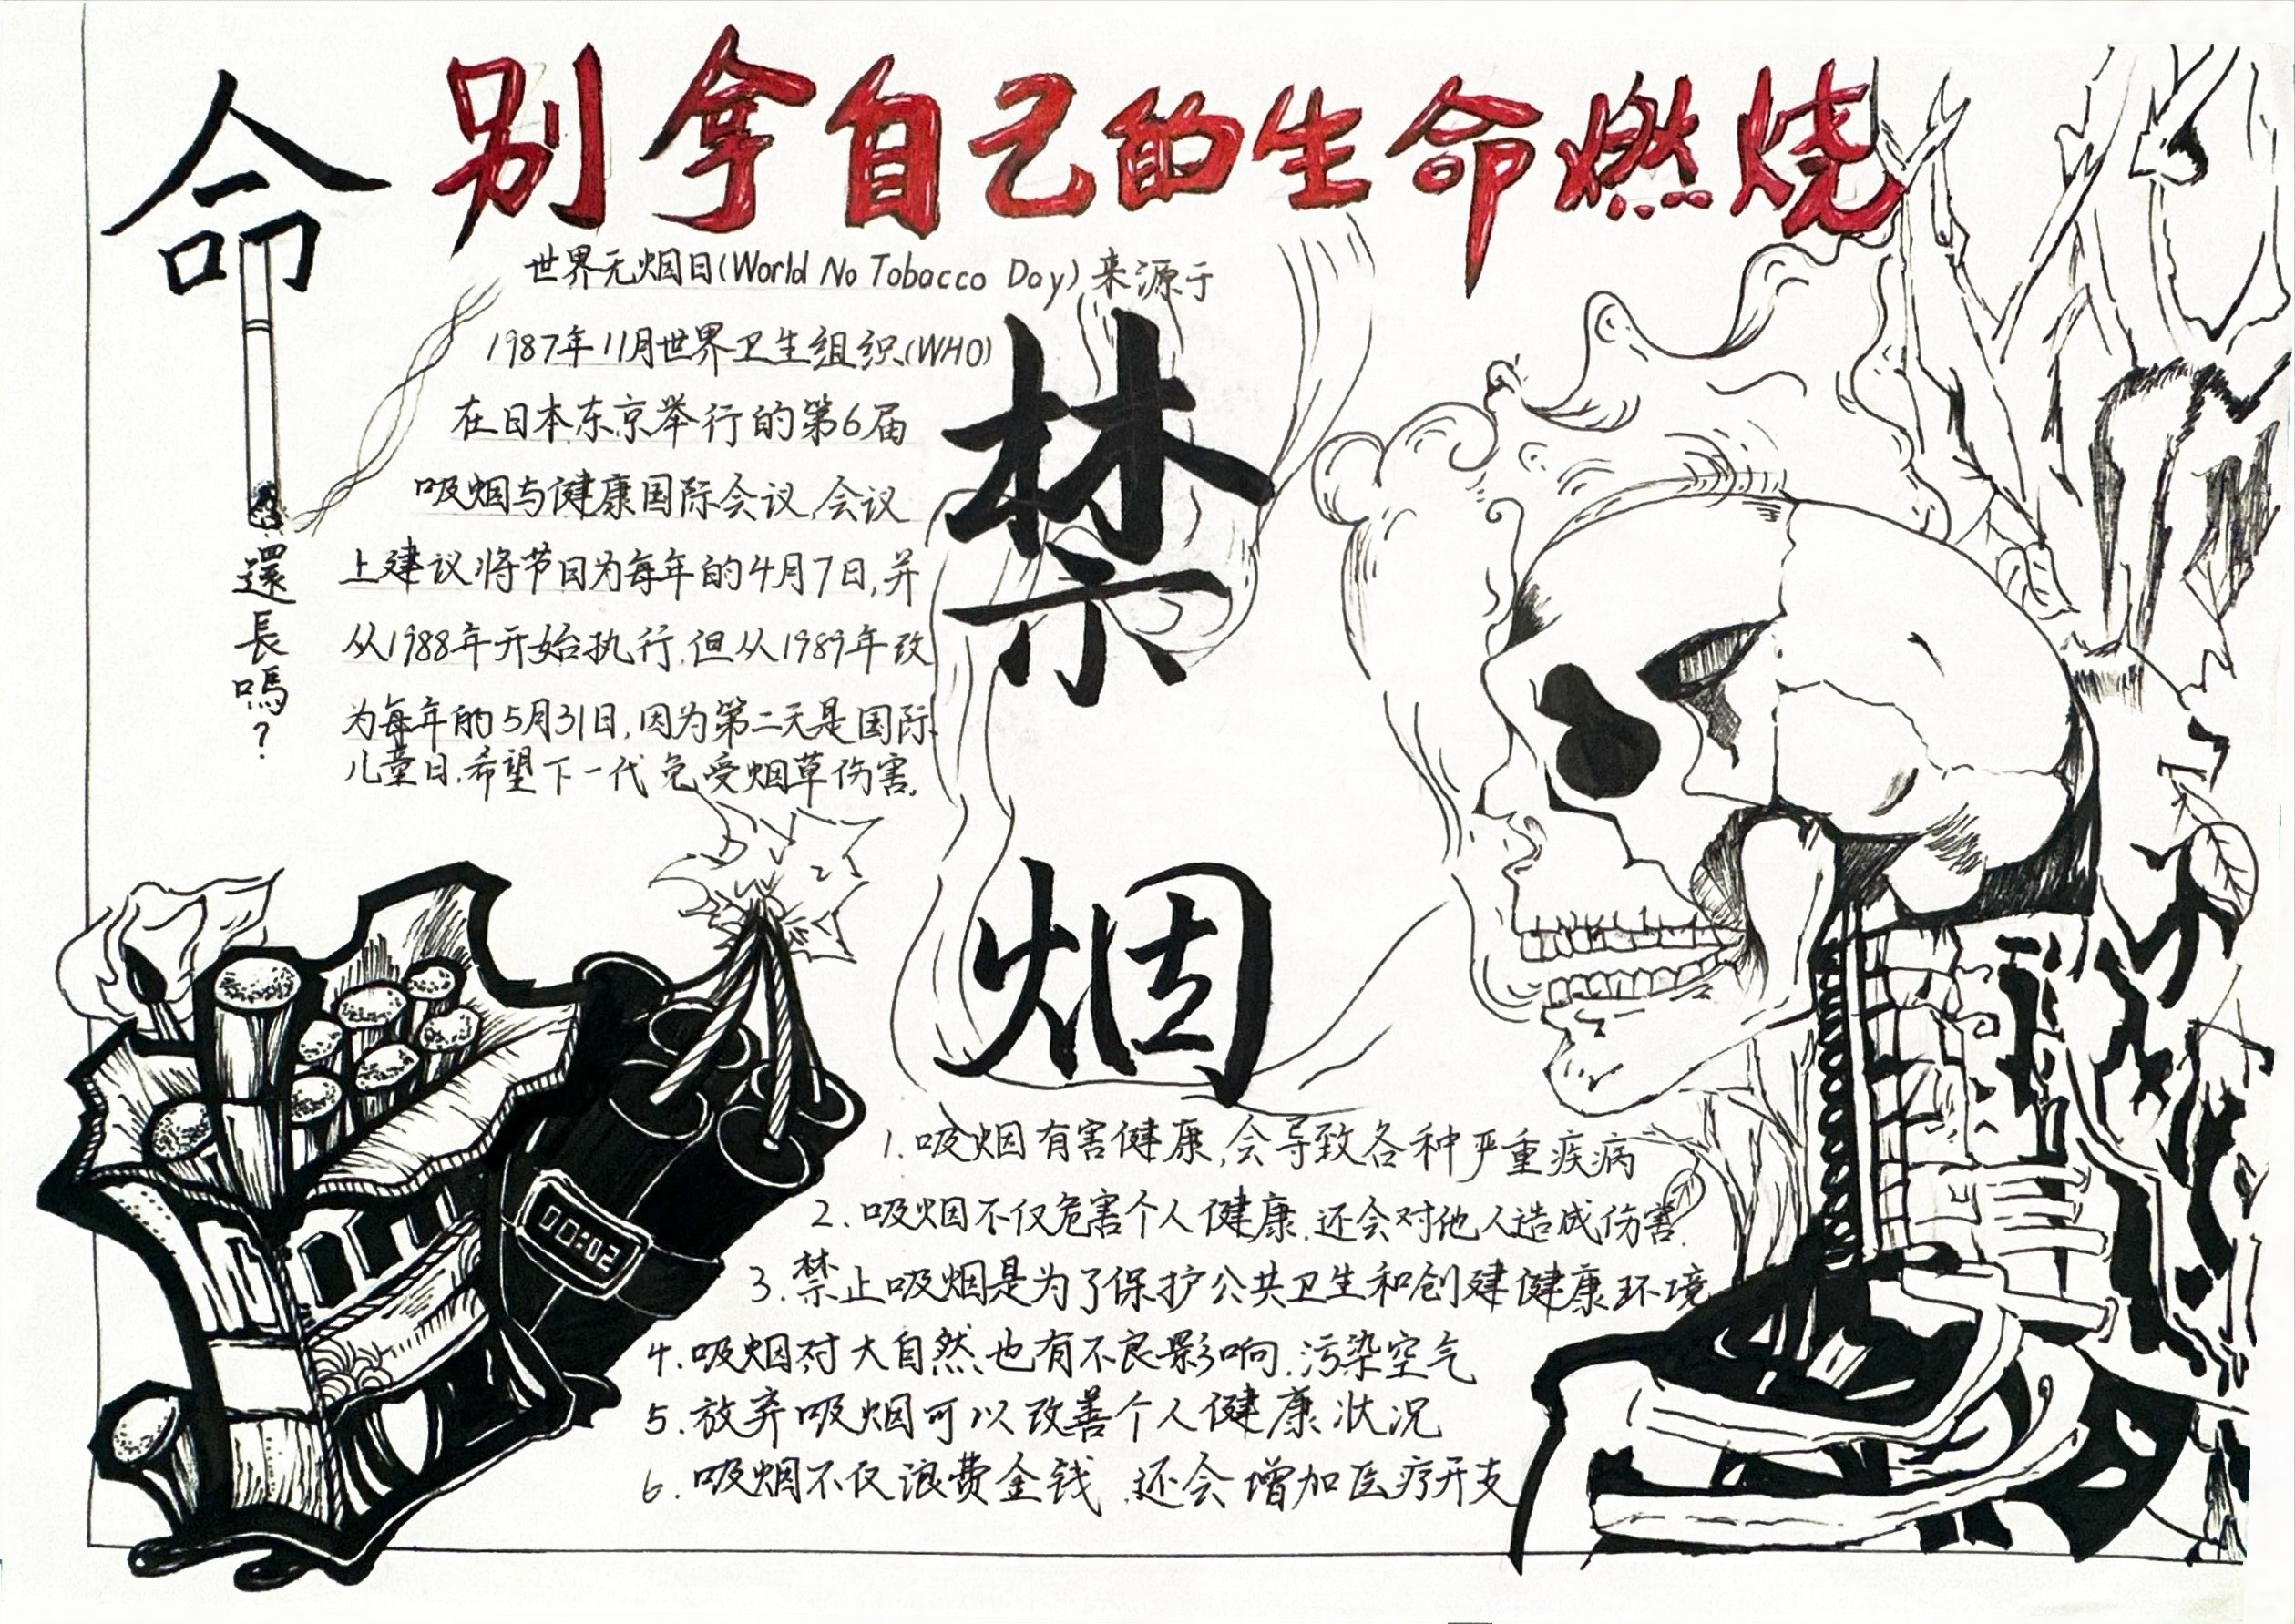 别拿自己的生命燃烧
命
還長嗎?
世界无烟日(World No Tobacco Day)来源于
1987年11月世界卫生组织(WHO)
在日本东京举行的第6届
吸烟与健康国际会议,会议
上建议将节日为每年的4月7日,并
从1988年开始执行,但从1989年改
为每年的5月31日,因为第二天是国际
儿童日,希望下一代免受烟草伤害.
禁
烟
00:02
1.吸烟有害健康,会导致各种严重疾病
2.吸烟不仅危害个人健康.还会对他人造成伤害.
3.禁止吸烟是为了保护公共卫生和创建健康环境
4.吸烟对大自然也有不良影响.污染空气
5.放弃吸烟可以改善个人健康状况
6.吸烟不仅浪费金钱.还会增加医疗开支